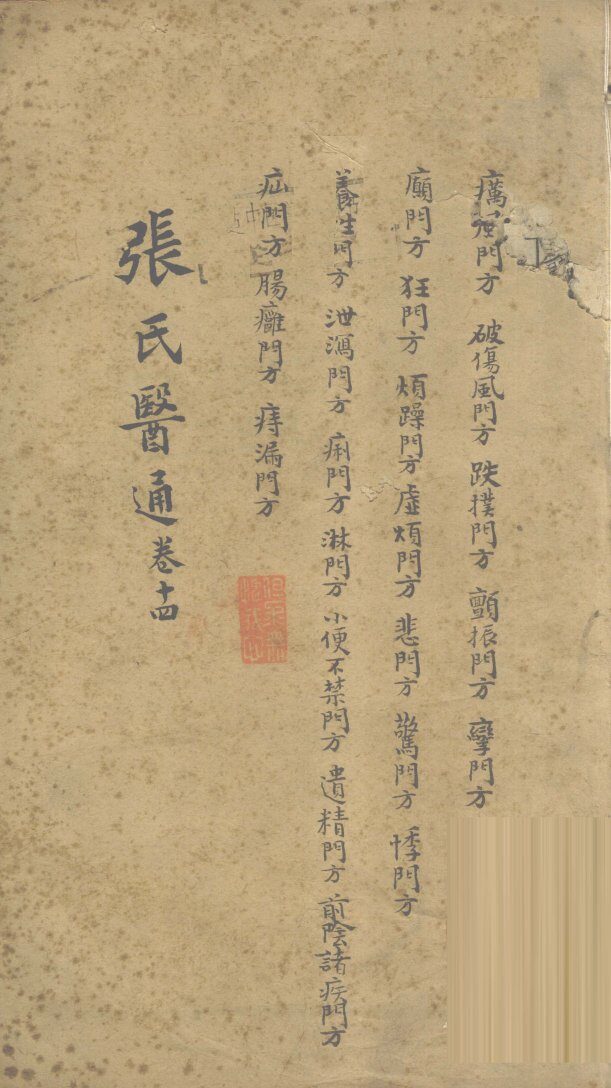 癘門方 破傷風門方 跌撲門方 顫振門方 攣門方
門方 狂門方 煩躁門方 虛煩門方 悲門方 驚門方 悸門方
門方 泄瀉門方 痢門方 淋門方 小便不禁門方 遺精門方 前陰諸疾門方
疝門方 腸癰門方 痔漏門方
張氏醫通卷十四